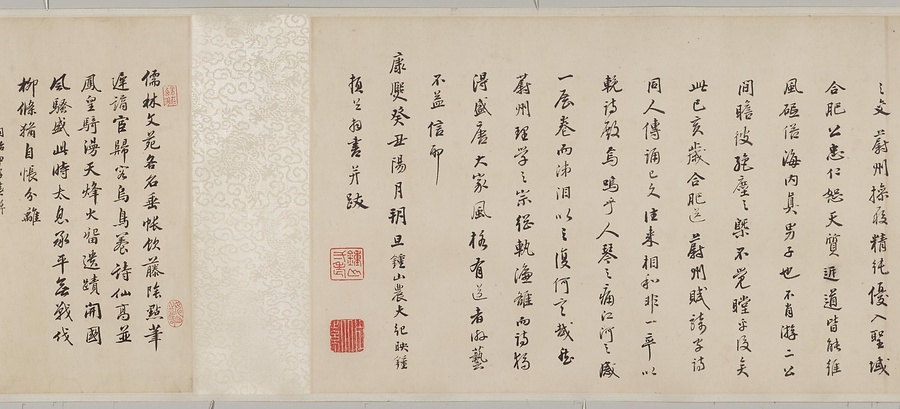 之文蔚州操履精純優入聖域
合肥公忠仁恕天質近道皆能維
風砥俗海內真男子也不肖游二公
間瞻彼絕塵之槩不覺瞠乎後矣
此己亥歲合肥送蔚州賦詩字詩
同人傳誦已久往來相和非一平以
輓詩殿焉嗚乎人琴之痛江河之感
一展卷而沛泪以之復何言哉
蔚州理學之宗從軌濂雒而詩猶
得盛唐大家風格有道者游藝
不益信耶
康熙癸丑陽月朔旦鍾山農夫紀映鍾
拜書并跋
儒林文苑各名垂帳飲藤陰點筆
遲諧宦歸容烏鳥養詩仙高並
鳳皇騎漫天烽火留遺蹟開國
風騷盛此時太息承平無戰伐
柳條猶自悵分離